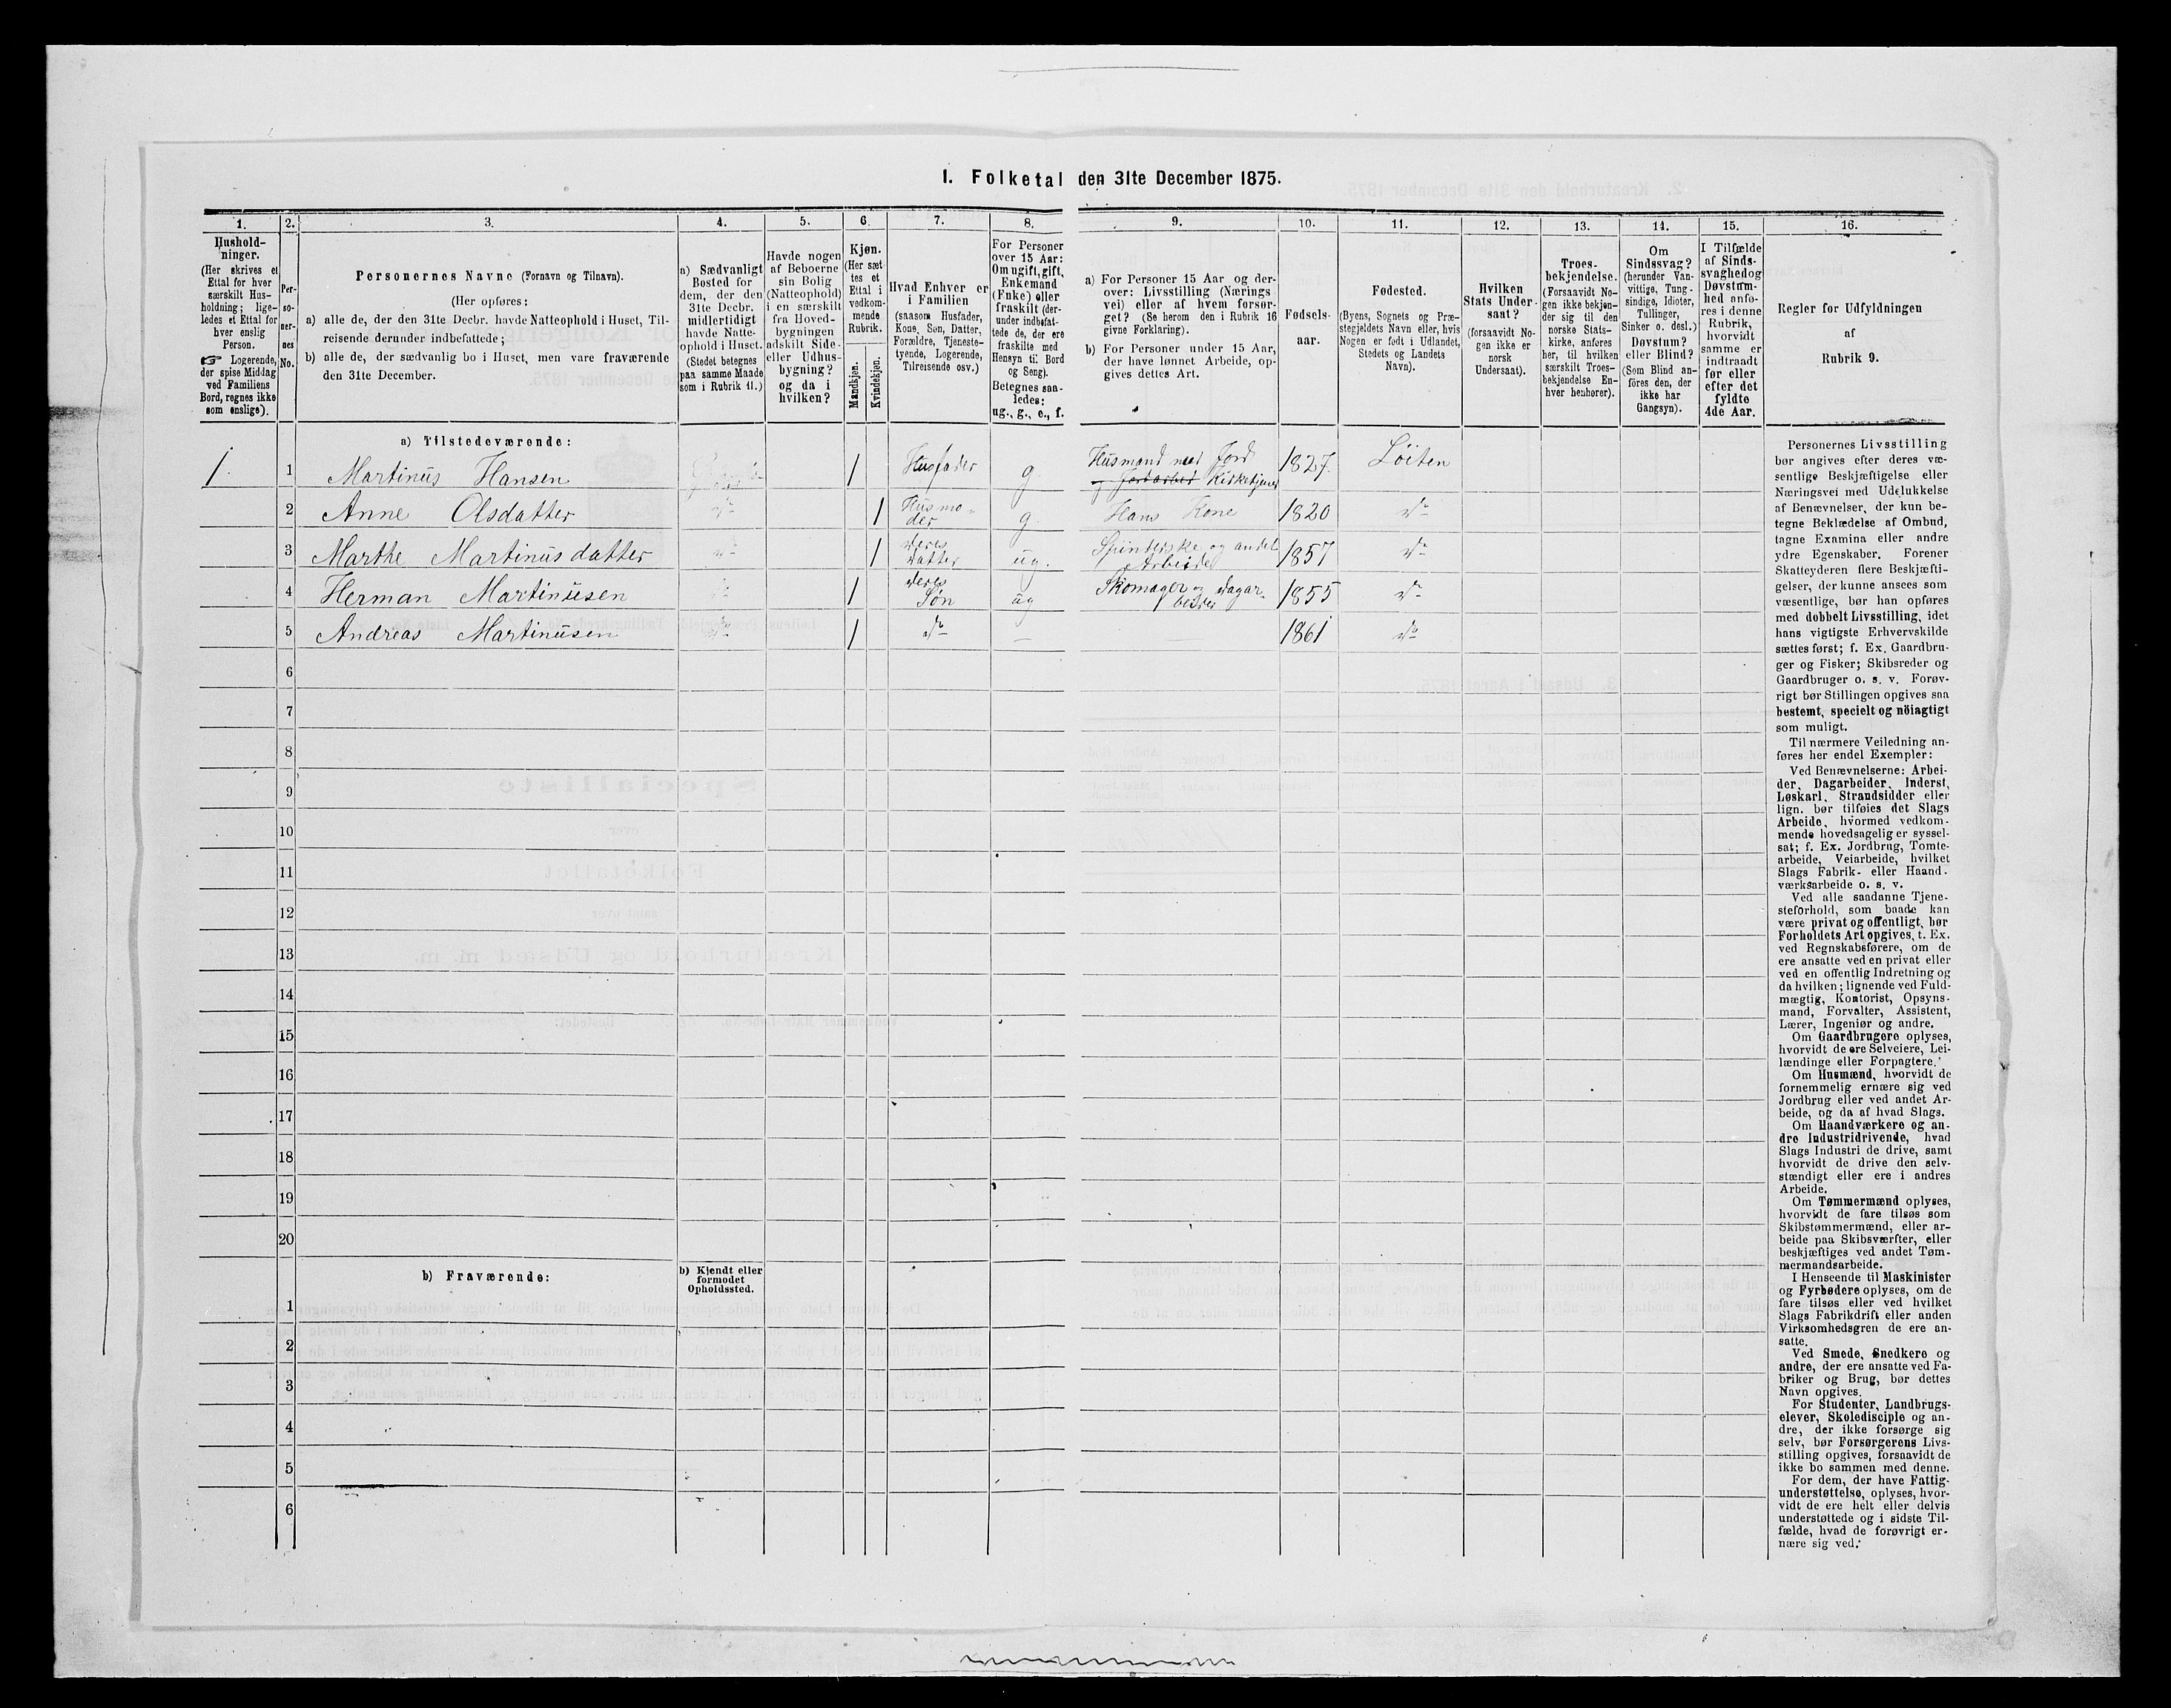 I. Folketal den 31te December 1875.
1. 2. 3. 4. 5. 6. 7. 8. 9. 10. 11. 12. 13. 14. 15. 16.
Hushold-
ninger.
(Her skrives et
Ettal for hver
særskilt Hus-
holdning; lige-
ledes et Ettal for
hver enslig
Person.
☞ Logerende,
der spise Middag
ved Familiens
Bord, regnes ikke
som enslige).
Per-
so-
ner-
nes
No.
Personernes Navne (Fornavn og Tilnavn).
(Her opføres:
a) alle de, der den 31te Decbr. havde Natteophold i Huset, Til-
reisende derunder indbefattede;
b) alle de, der sædvanlig bo i Huset, men vare fraværende
den 31te December.
a) Sædvanligt
Bosted for
dem, der den
31te Decbr.
midlertidigt
havde Natte-
ophold i Huset.
(Stedet betegnes
paa samme Maade
som i Rubrik 11.)
Havde nogen
af Beboerne
sin Bolig
(Natteophold)
i en særskilt
fra Hoved-
bygningen
adskilt Side-
eller Udhus-
bygning?
og da i
hvilken?
Kjøn.
(Her sæt-
tes et
Ettal i
vedkom-
mende
Rubrik.
Mandkjøn.
Kvindekjøn.
Hvad Enhver er
i Familien
(saasom Husfader,
Kone, Søn, Datter,
Forældre, Tjeneste-
tyende, Logerende,
Tilreisende osv.)
For Personer
over 15 Aar:
Om ugift, gift,
Enkemand
(Enke) eller
fraskilt (der-
under indbefat-
tede de, der ere
fraskilte med
Hensyn til Bord
og Seng).
Betegnes saa-
ledes:
ug., g., e., f.
a) For Personer 15 Aar og der-
over: Livsstilling (Nærings
vei) eller af hvem forsør-
get? (Se herom den i Rubrik 16
givne Forklaring).
b) For Personer under 15 Aar,
der have lønnet Arbeide, op-
gives dettes Art.
Fødsels-
aar.
Fødested.
(Byens, Sognets og Præ-
stegjeldets Navn eller, hvis
Nogen er født i Udlandet,
Stedets og Landets
Navn).
Hvilken
Stats Under-
saat?
(forsaavidt No-
gen ikke er
norsk
Undersaat).
Troes-
bekjendelse.
(Forsaavidt No-
gen ikke bekjen-
der sig til den
norske Stats-
kirke, anføres
her, til hvilken
særskilt Troes-
bekjendelse En-
hver henhører).
Om
Sindssvag?
(herunder Van-
vittige, Tung-
sindige, Idioter,
Tullinger,
Sinker o. desl.)
Døvstum?
eller Blind?
(Som Blind an-
føres den, der
ikke har
Gangsyn).
I Tilfælde
af Sinds-
svaghed og
Døvstum-
hed anfø-
res i denne
Rubrik,
hvorvidt
samme er
indtraadt
før eller
efter det
fyldte
4de Aar.
Regler for Udfyldningen
af
Rubrik 9.
a) Tilstedeværende:
1. 1 Martinus Hansen 1 Husfader g Husmand med Jord og Jordarbei Kirketjener 1827. Löiten
2 Anne Olsdatter do 1 Husmo-der g. Hans Kone 1820 do
3 Marthe Martinusdatter do 1 deres Datter ug. Spinderske og andet Arbeide 1857 do
4 Herman Martinusen do 1 deres Søn ug Skomager og Dagar-beider 1855 do
5 Andreas Martinusen do 1 do — — 1861 do
6
7
8
9
10
11
12
13
14
15
16
17
18
19
20
b) Fraværende:
b) Kjendt eller
formodet
Opholdssted.
1
2
3
4
5
6
Personernes Livsstilling
bør angives efter deres væ-
sentlige Beskjæftigelse eller
Næringsvei med Udelukkelse
af Benævnelser, der kun be-
tegne Beklædelse af Ombud,
tagne Examina eller andre
ydre Egenskaber. Forener
Skatteyderen flere Beskjæfti-
gelser, der kunne ansees som
væsentlige, bør han opføres
med dobbelt Livsstilling, idet
hans vigtigste Erhvervskilde
sættes først; f. Ex. Gaardbru-
ger og Fisker; Skibsreder og
Gaardbruger o. s. v. Forøv-
rigt bør Stillingen opgives saa
bestemt, specielt og nöiagtigt
som muligt.
Til nærmere Veiledning an-
føres her endel Exempler:
Ved Benævnelserne: Arbei-
der, Dagarbeider, Inderst,
Løskarl, Strandsidder eller
lign. bør tilføies det Slags
Arbeide, hvormed vedkom-
mende hovedsagelig er syssel-
sat; f. Ex. Jordbrug, Tomte-
arbeide, Veiarbeide, hvilket
Slags Fabrik- eller Haand-
værksarbeide o. s. v.
Ved alle saadanne Tjene-
steforhold, som baade kan
være privat og offentligt, bør
Forholdets Art opgives, t. Ex.
ved Regnskabsførere, om de
ere ansatte ved en privat eller
ved en offentlig Indretning og
da hvilken; lignende ved Fuld-
mægtig, Kontorist, Opsyns-
mand, Forvalter, Assistent,
Lærer, Ingeniør og andre.
Om Gaardbrugere oplyses,
hvorvidt de ere Selveiere, Lei-
lændinge eller Forpagtere.
Om Husmænd, hvorvidt de
fornemmelig ernære sig ved
Jordbrug eller ved andet Ar-
beide, og da af hvad Slags.
Om Haandværkere og an-
dre Industridrivende, hvad
Slags Industri de drive, samt
hvorvidt de drive den selv-
stændigt eller ere i andres
Arbeide.
Om Tømmermænd oplyses,
hvorvidt de fare tilsøs som
Skibstømmermænd, eller ar-
beide paa Skibsværfter, eller
beskjæftiges ved andet Tøm-
mermandsarbeide.
I Henseende til Maskinister
og Fyrbødere oplyses, om de
fare tilsøs eller ved hvilket
Slags Fabrikdrift eller anden
Virksomhedsgren de ere an-
satte.
Ved Smede, Snedkere og
andre, der ere ansatte ved Fa-
briker og Brug, bør dettes
Navn opgives.
For Studenter, Landbrugs-
elever, Skoledisciple og an-
dre, der ikke forsørge sig
selv, bør Forsørgerens Livs-
stilling opgives, forsaavidt de
ikke bo sammen med denne.
For dem, der have Fattig-
understøttelse, oplyses, hvor-
vidt de ere helt eller delvis
understøttede og i sidste Til-
fælde, hvad de forøvrigt er-
nære sig ved.